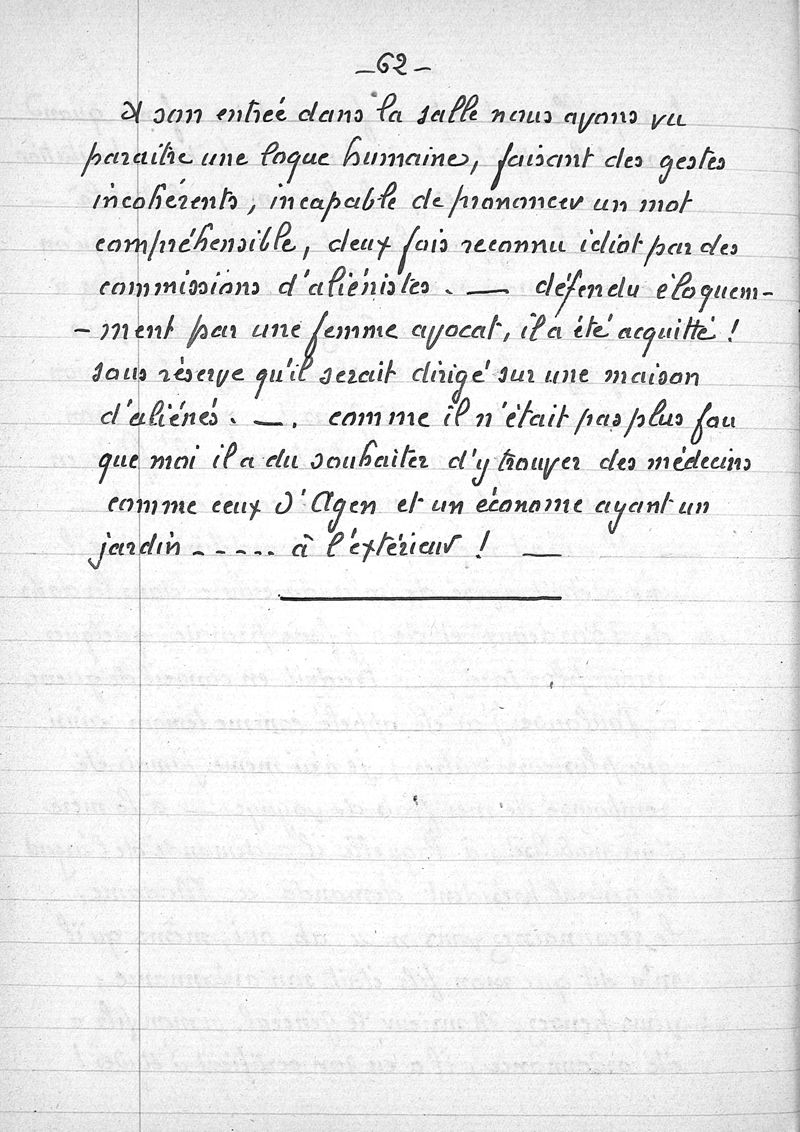 — 62 —
A son entrée dans la salle nous avons vu
paraitre une loque humaine, faisant des gestes
incohérents, incapable de prononcer un mot
compréhensible, deux fois reconnu idiot par des
commissions d'aliénistes. — défendu éloquem-
- ment par une femme avocat, il a été acquitté !
sous réserve qu'il serait dirigé sur une maison
d'aliénés. —. comme il n'était pas plus fou
que moi il a du souhaiter d'y trouver des médecins
comme ceux d'Agen et un économe ayant un
jardin - - - - - à l'extérieur ! —